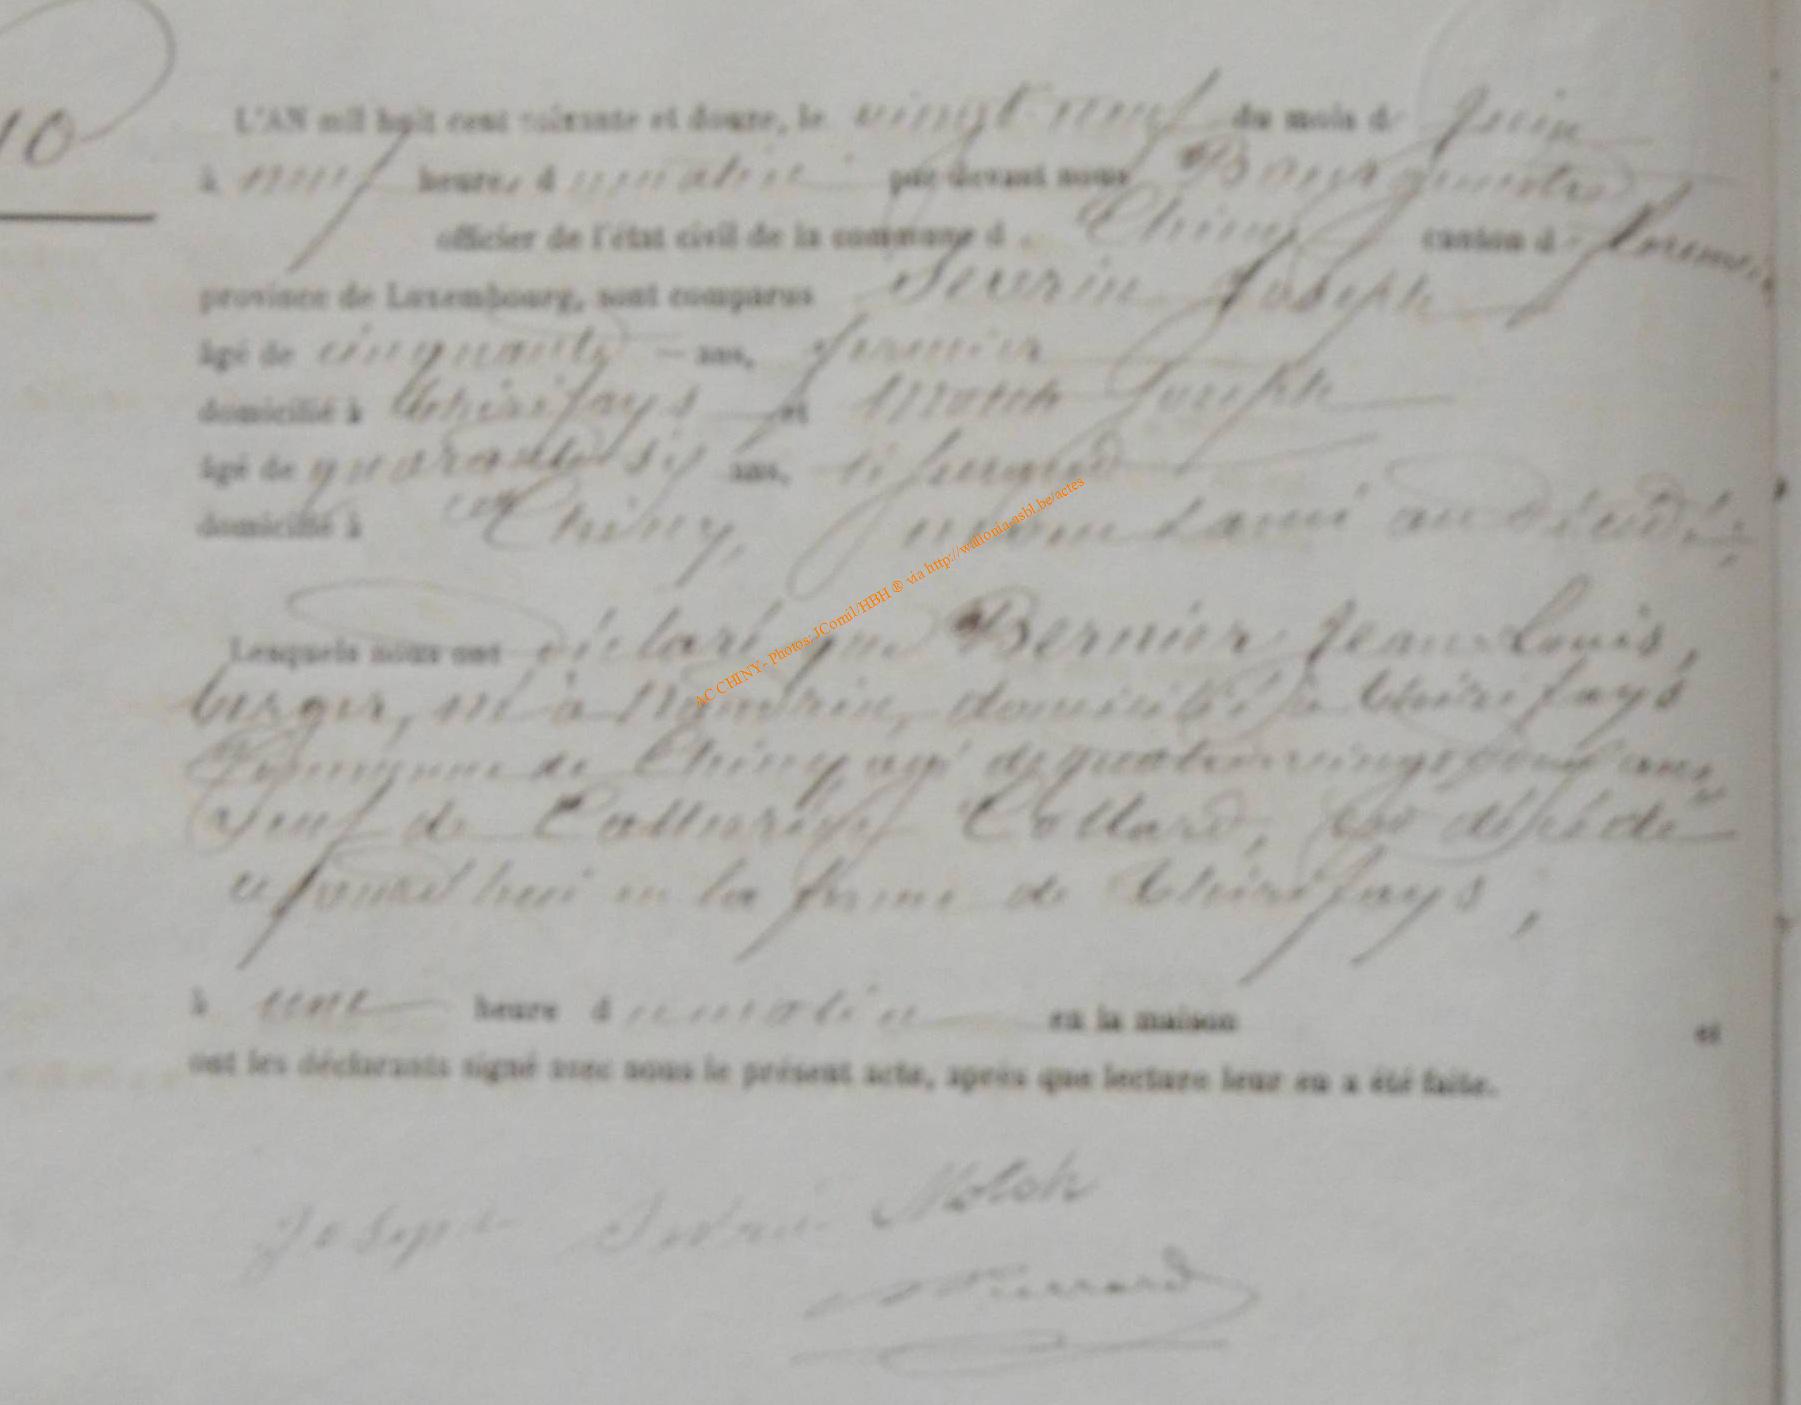 10
L'AN mil huit cent soixante et douze, le vingt neuf du mois de Juin
à neuf heures du matin par devant nous Bourgmestre
officier de l'état civil de la commune de Chiny canton de
province de Luxembourg, sont comparus Severin Joseph
âgé de cinquante ans, fermier
domicilié à Thirifays et Motch Joseph
âgé de quarante six ans,
domicilié à Chiny,
Lesquels nous ont déclaré que Bernier Jean Louis,
berger, né à domicilié à Thirifays
Commune de Chiny, agé de quatre vingt ans,
veuf de Collard, est décédé
ce jourd'hui en la ferme de Thirifays,
à une heure du matin en la maison et
ont les déclarants signé avec nous le présent acte, après que lecture leur en a été faite.
Joseph Severin Motch
Pierrard
AC CHINY- Photos: JComil/HBH ® via http://wallonia-asbl.be/actes